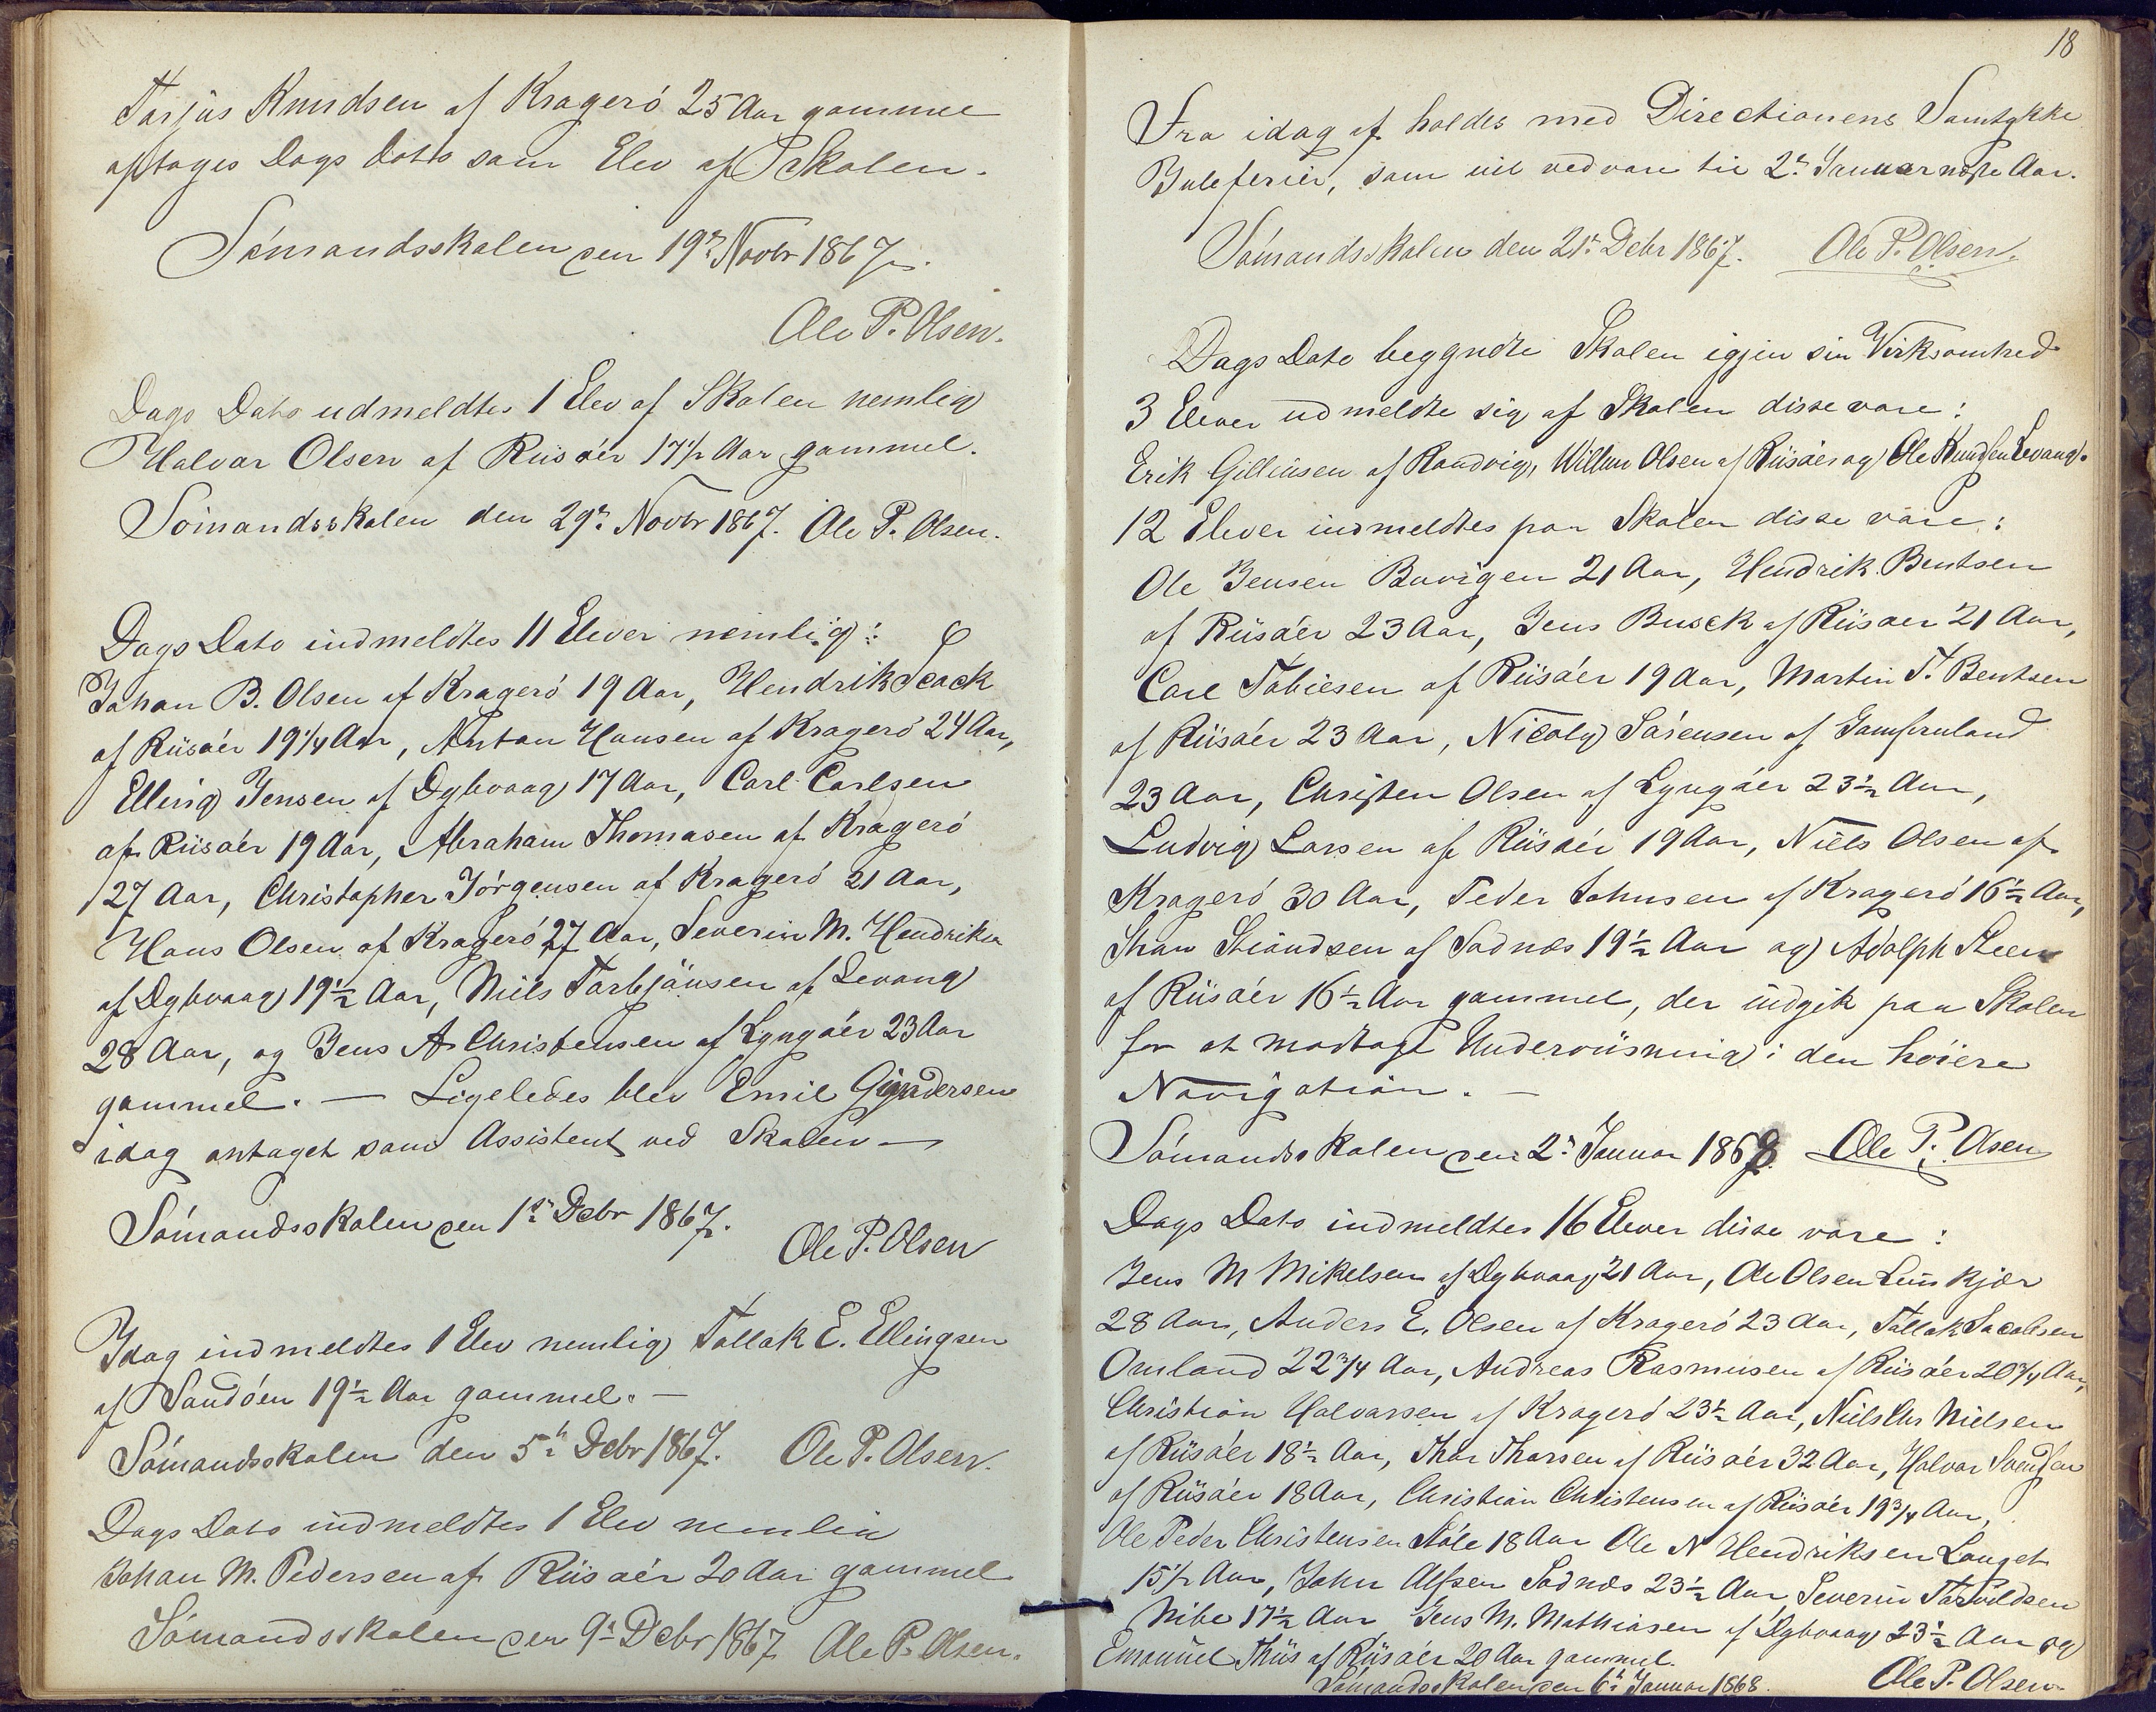 Tarjus Knudsen af Kragerö 25 Aar gammel
optages Dags Dato som Elev af Skolen.
Sömandsskolen den 19de Novbr 1867.
Ole P. Olsen.
Dags Dato udmeldtes 1 Elev af Skolen nemlig
Halvor Olsen af Riisöer 17½ Aar gammel.
Sömandsskolen den 29de Novbr 1867. Ole P. Olsen.
Dags Dato indmeldtes 11 Elever nemlig:
Johan B. Olsen af Kragerö 19 Aar, Hendrik
af Riisöer 19¼ Aar, Anton Hansen af Kragerö 24 Aar,
Elling Jensen af Dybvaag 17 Aar, Carl Carlsen
af Riisöer 19 Aar, Abraham Thomasen af Kragerö
27 Aar, Christopher Jörgensen af Kragerö 21 Aar,
Hans Olsen af Kragerö 27 Aar, Severin M. Hendriksen
af Dybvaag 19½ Aar, Niels Torbjönsen af Levang
28 Aar, og Jens A Christensen af Lyngöer 23 Aar
gammel. — Ligeledes blev Emil Gundersen
idag antaget som Assistent ved Skolen —
Sömandsskolen den 1ste Debr 1867.
Ole P. Olsen
Idag indmeldtes 1 Elev nemlig Tallak E. Ellingsen
af Sandöen 19½ Aar gammel. —
Sömandsskolen den 5te Debr 1867. Ole P. Olsen.
Dags Dato indmeldtes 1 Elev nemlig
Johan M. Pedersen af Riisöer 20 Aar gammel
Sömandsskolen den 9de Debr 1867 Ole P. Olsen.
18
Fra idag af holdes med Directionens Samtykke
Juleferier, som vil vedvare til 2den Januar næste Aar.
Sömandsskolen den 21de Debr 1867. Ole P. Olsen.
Dags Dato begyndte Skolen igjen sin Virksomhed
3 Elever udmeldte sig af Skolen disse vare:
Erik Gilliusen af Randvig, Willum Olsen af Riisöer og Ole Knudsen Levang.
12 Elever indmeldtes paa Skolen disse vare:
Ole Jensen Buvigen 21 Aar, Hendrik Bentsen
af Riisöer 23 Aar, Jens Busck af Riisöer 21 Aar,
Carl Tobiesen af Riisöer 19 Aar, Martin T. Bentsen
af Riisöer 23 Aar, Nicoly Sörensen af Jomfruland
23 Aar, Christen Olsen af Lyngöer 23½ Aar,
Ludvig Larsen af Riisöer 19 Aar, Niels Olsen af
Kragerö 30 Aar, Peder Johnsen af Kragerö 16½ Aar,
af Södnæs 19½ Aar og Adolph Steen
af Riisöer 16½ Aar gammel, der indgik paa Skolen
for at modtage Underviisning i den höiere
Navigation. —
Sömandsskolen den 2den Januar 1868. Ole P. Olsen
Dags Dato indmeldtes 16 Elever disse vare:
Jens M Mikelsen af Dybvaag 21 Aar, Ole Olsen
28 Aar, Anders E. Olsen af Kragerö 23 Aar, Tallak Jacobsen
Omland 22¾ Aar, Andreas Rasmusen af Riisöer 20¾ Aar,
Christian Halvorsen af Kragerö 23½ Aar, Niels Chr Nielsen
af Riisöer 18½ Aar, Thor Thorsen af Riisöer 32 Aar, Halvor Svendsen
af Riisöer 18 Aar, Christian Christensen af Riisöer 19¾ Aar,
Ole Peder Christensen Stöle 18 Aar Ole N Hendriksen Langet
15½ Aar, John Alfsen Södnæs 23½ Aar, Severin Tarvildsen
Nibe 17½ Aar Jens M. Mathiasen af Dybvaag 23½ Aar og
Emanuel Thiis af Riisöer 20 Aar gammel.
Sömandsskolen den 6te Januar 1868. Ole P. Olsen